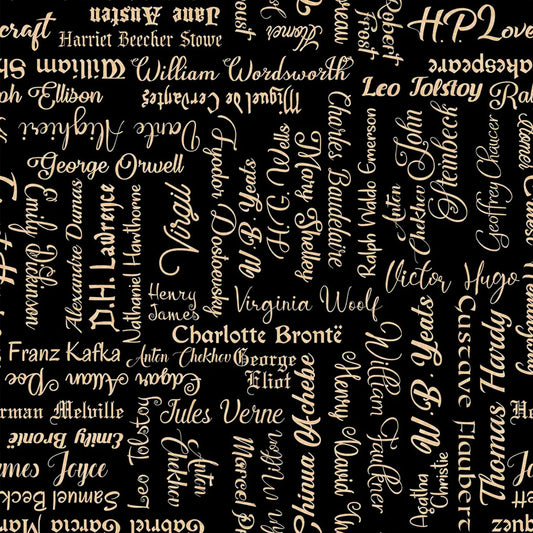 craft
Jane Austen
Proust
Homer
Robert
Frost
H.P. Love
Harriet Beecher Stowe
William Sh
William Wordsworth
akespeare
ph Ellison
Miguel de Cervantes
Leo Tolstoy
Ral
Dante Alighieri
George Orwell
Fyodor Dostoevsky
W. B. Yeats
H. G. Wells
Mary Shelley
Charles Baudelaire
Ralph Waldo Emerson
Anton
Chekhov
John
Steinbeck
Geoffrey Chaucer
Ernest Hemingway
Emily Dickinson
Alexandre Dumas
D.H. Lawrence
Nathaniel Hawthorne
Virgil
Henry
James
Virginia Woolf
Victor Hugo
Charlotte Brontë
Franz Kafka
Anton Chekhov
George
Eliot
Edgar Allan Poe
rman Melville
Jules Verne
He
Emily Brontë
mes Joyce
Leo Tolstoy
Anton
Chekhov
Marcel P
Milton
Chinua Achebe
Henry David
William
Faulkner
W. B. Yeats
Agatha
Christie
Gustave Flaubert
Thomas Hardy
Ja
Samuel Beck
ett
Gabriel Garcia Mar
quez